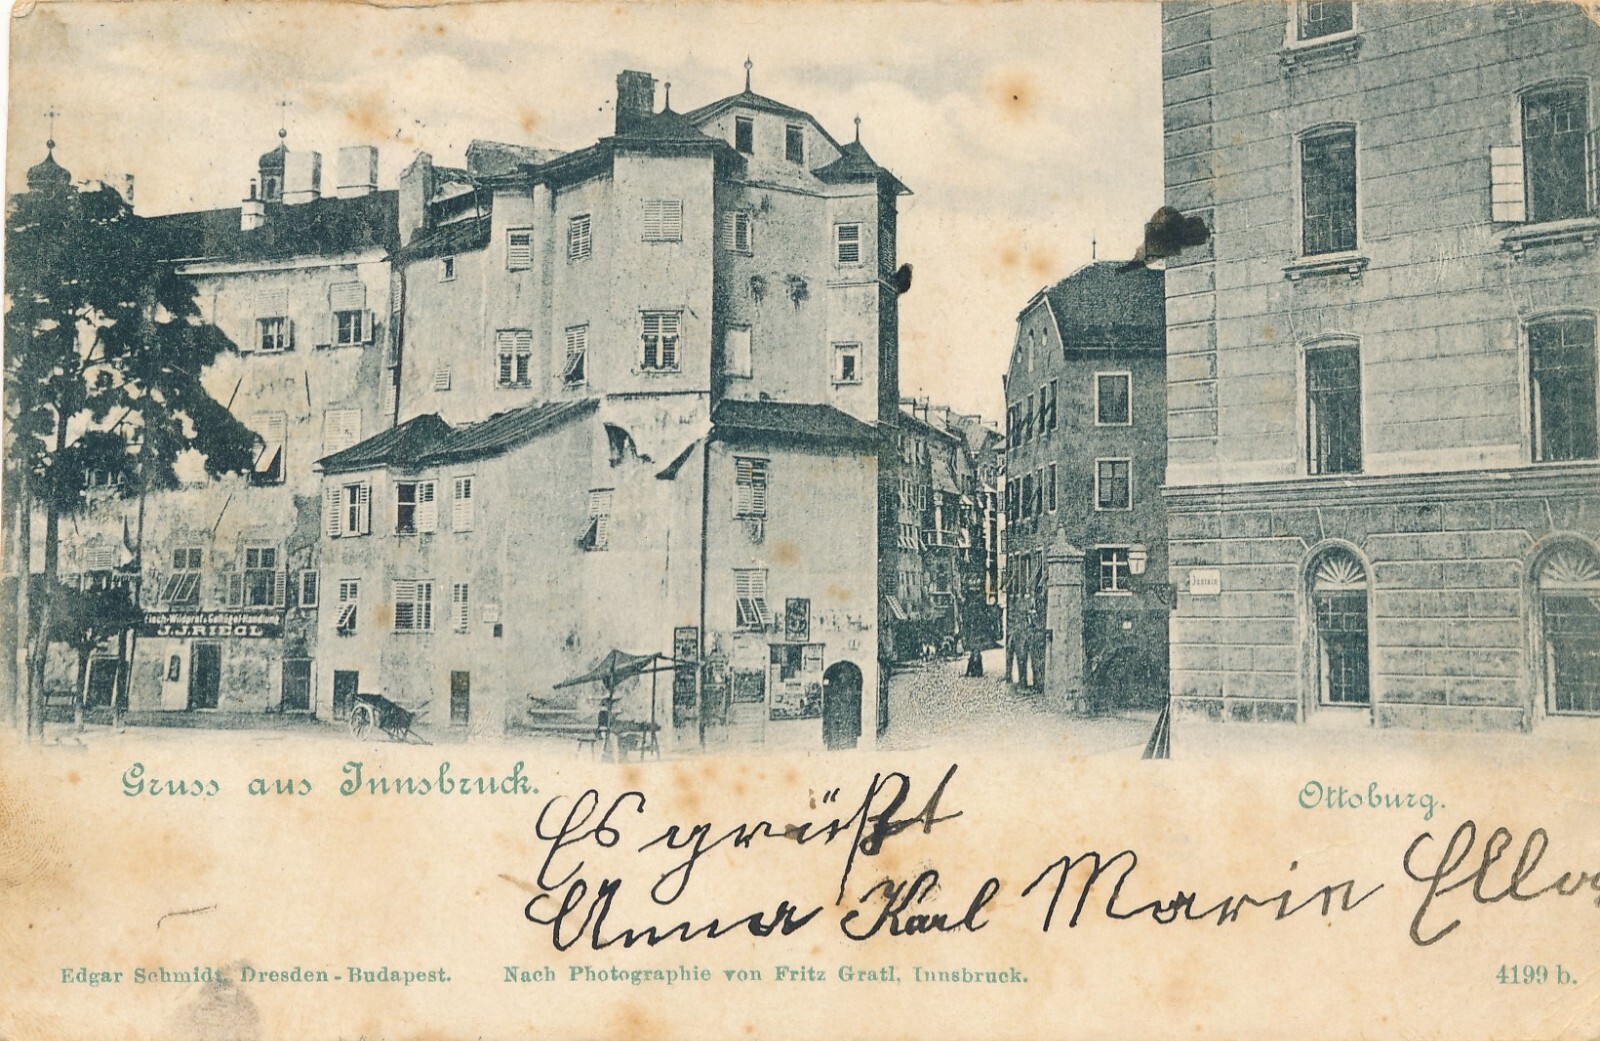 Fisch-Wildpret & Geflügel-Handlung
J.J.RIEGL
Gruss aus Innsbruck.
Ottoburg.
Es grüßt
Anna Karl Marie Ella
Edgar Schmidt, Dresden-Budapest.
Nach Photographie von Fritz Gratl, Innsbruck.
4199 b.